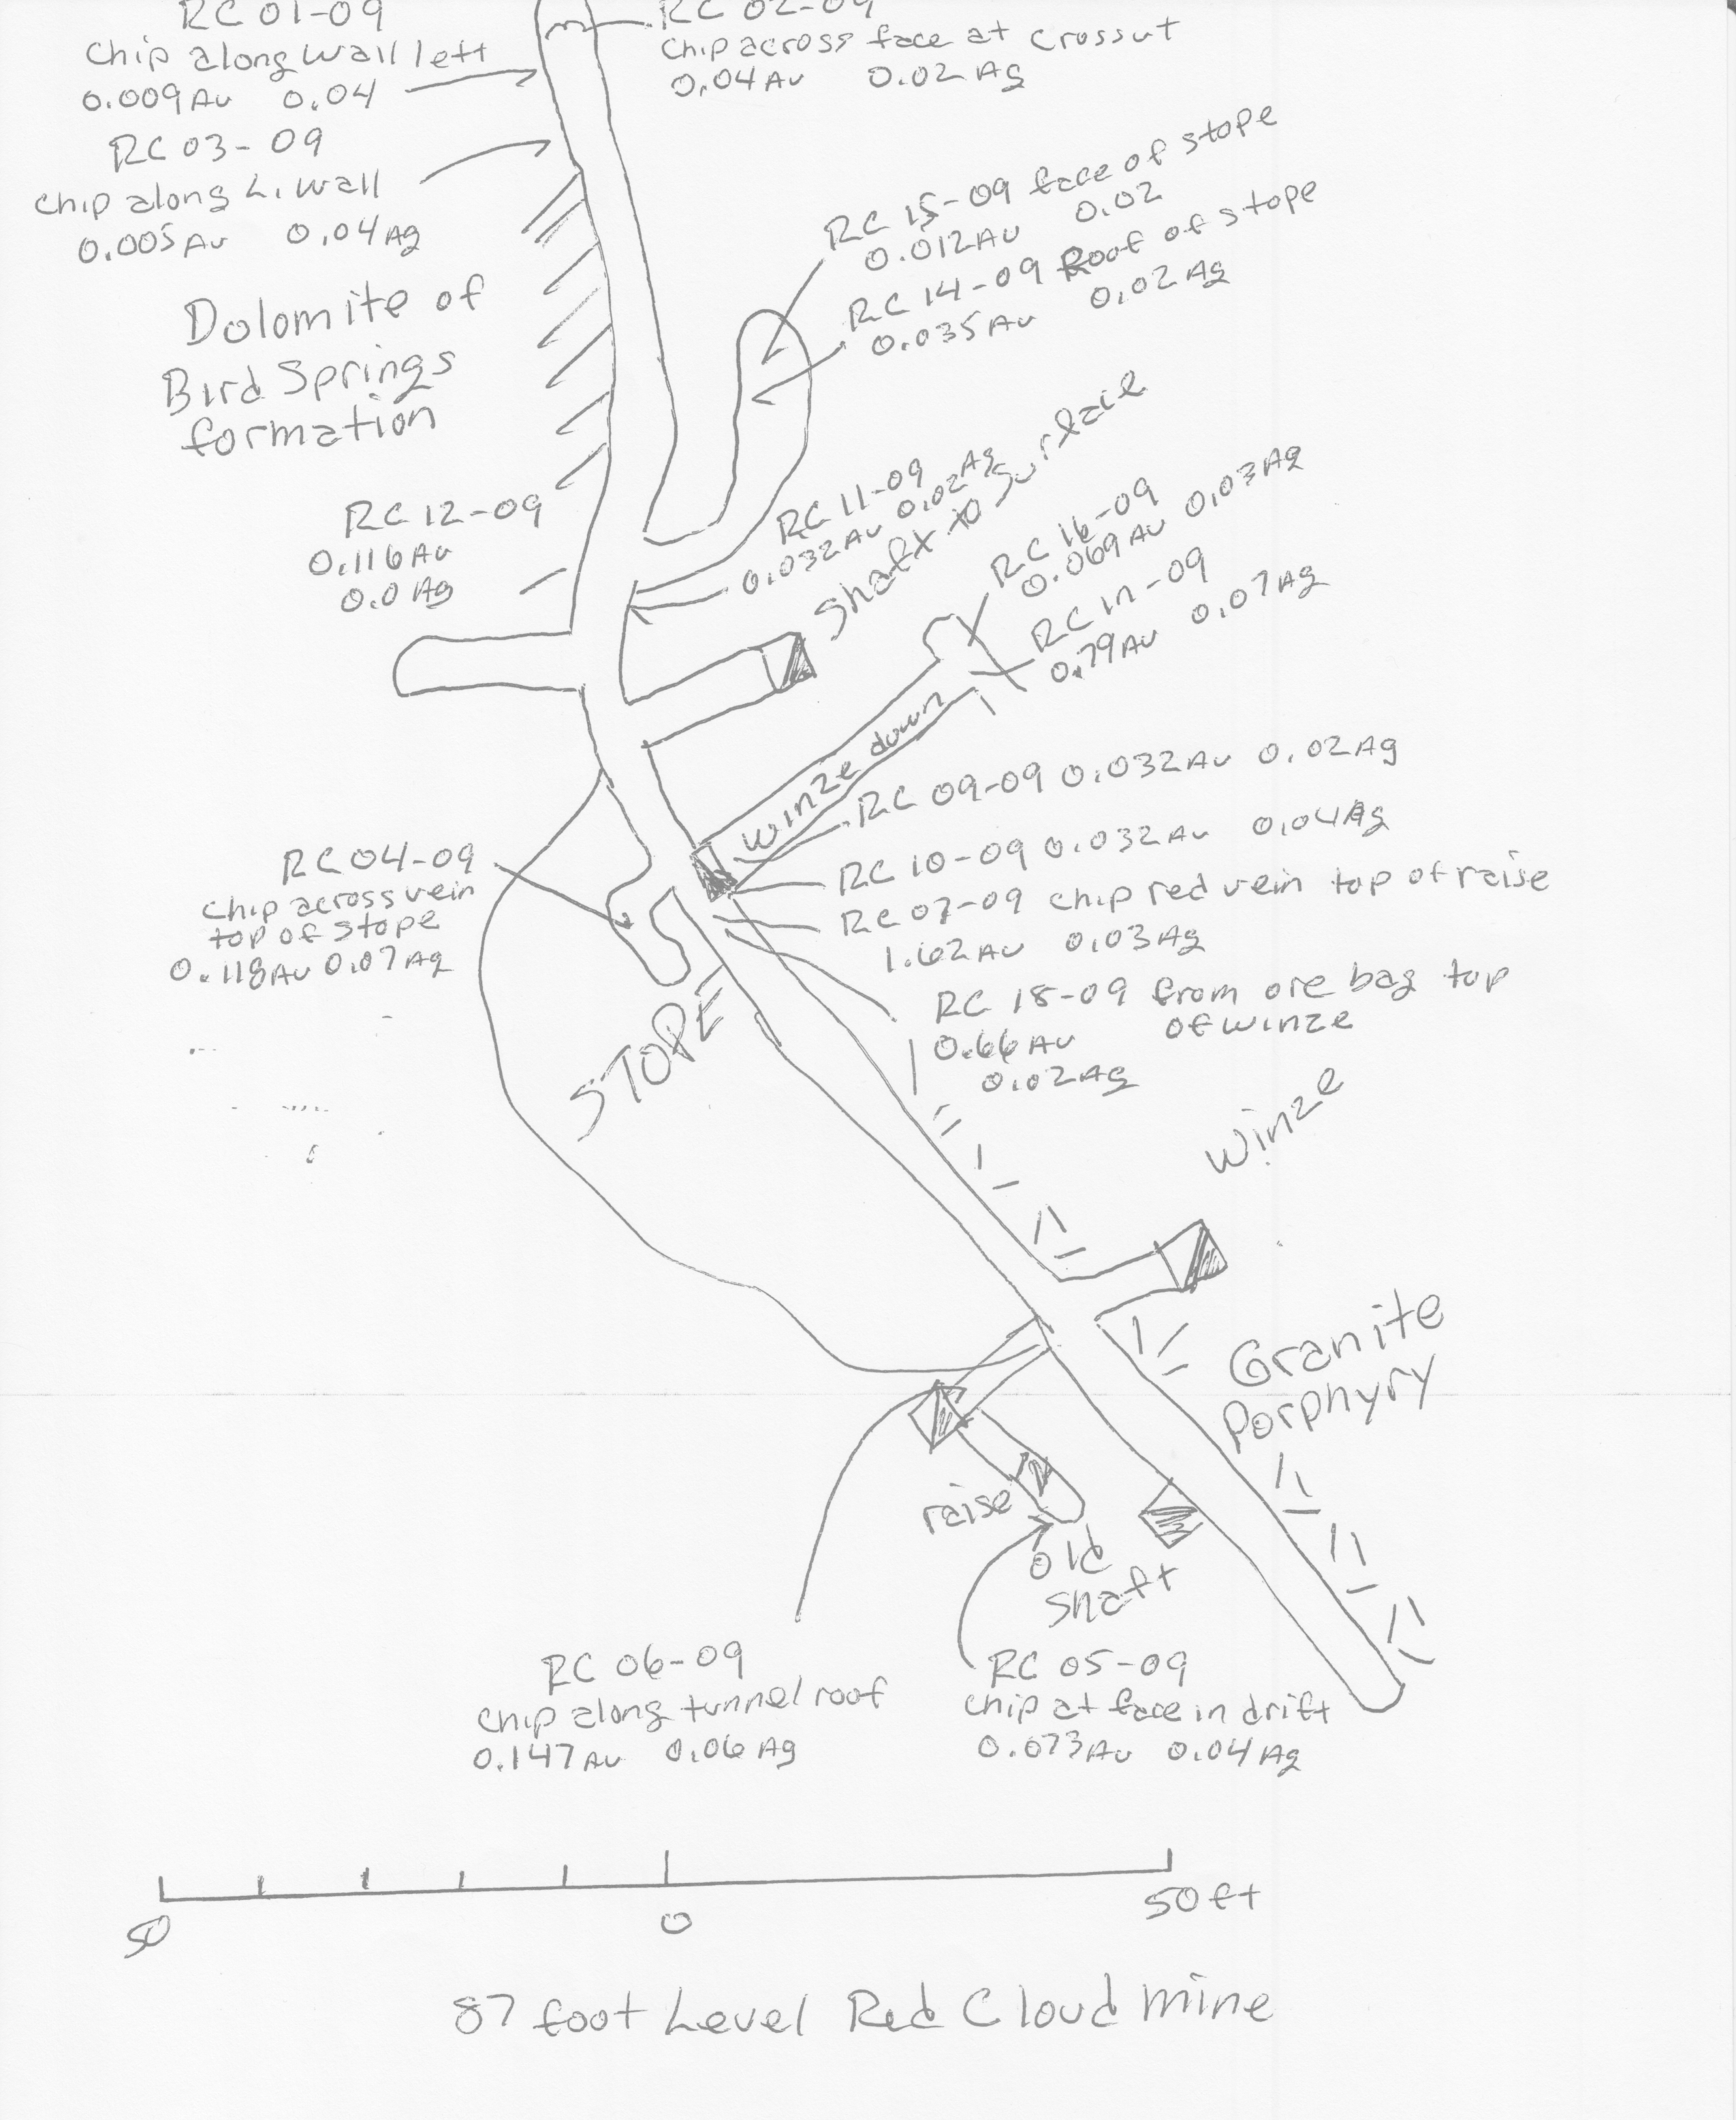 RC 01-09
Chip along wall left
0.009 Au 0.04
RC 02-09
Chip across face at crossut
0.04 Au 0.02 Ag
RC 03-09
chip along L. wall
0.005 Au 0.04 Ag
Dolomite of
Bird Springs
formation
RC 15-09 face of stope
0.012 Au 0.02
RC 14-09 Roof of stope
0.035 Au 0.02 Ag
RC 12-09
0.116 Au
0.0 Ag
RC 11-09
0.032 Au 0.02 Ag
Shaft to Surface
RC 16-09
0.069 Au 0.03 Ag
RC 17-09
0.79 Au 0.07 Ag
winze down
RC 09-09 0.032 Au 0.02 Ag
RC 10-09 0.032 Au 0.04 Ag
RC 07-09 chip red vein top of raise
1.62 Au 0.03 Ag
RC 04-09
Chip across vein
top of stope
0.118 Au 0.07 Ag
STOPE
RC 18-09 from ore bag top
of winze
0.66 Au
0.02 Ag
Winze
Granite
Porphyry
raise
old
shaft
RC 06-09
Chip along tunnel roof
0.147 Au 0.06 Ag
RC 05-09
chip at face in drift
0.073 Au 0.04 Ag
50 0 50 ft
87 foot Level Red Cloud Mine